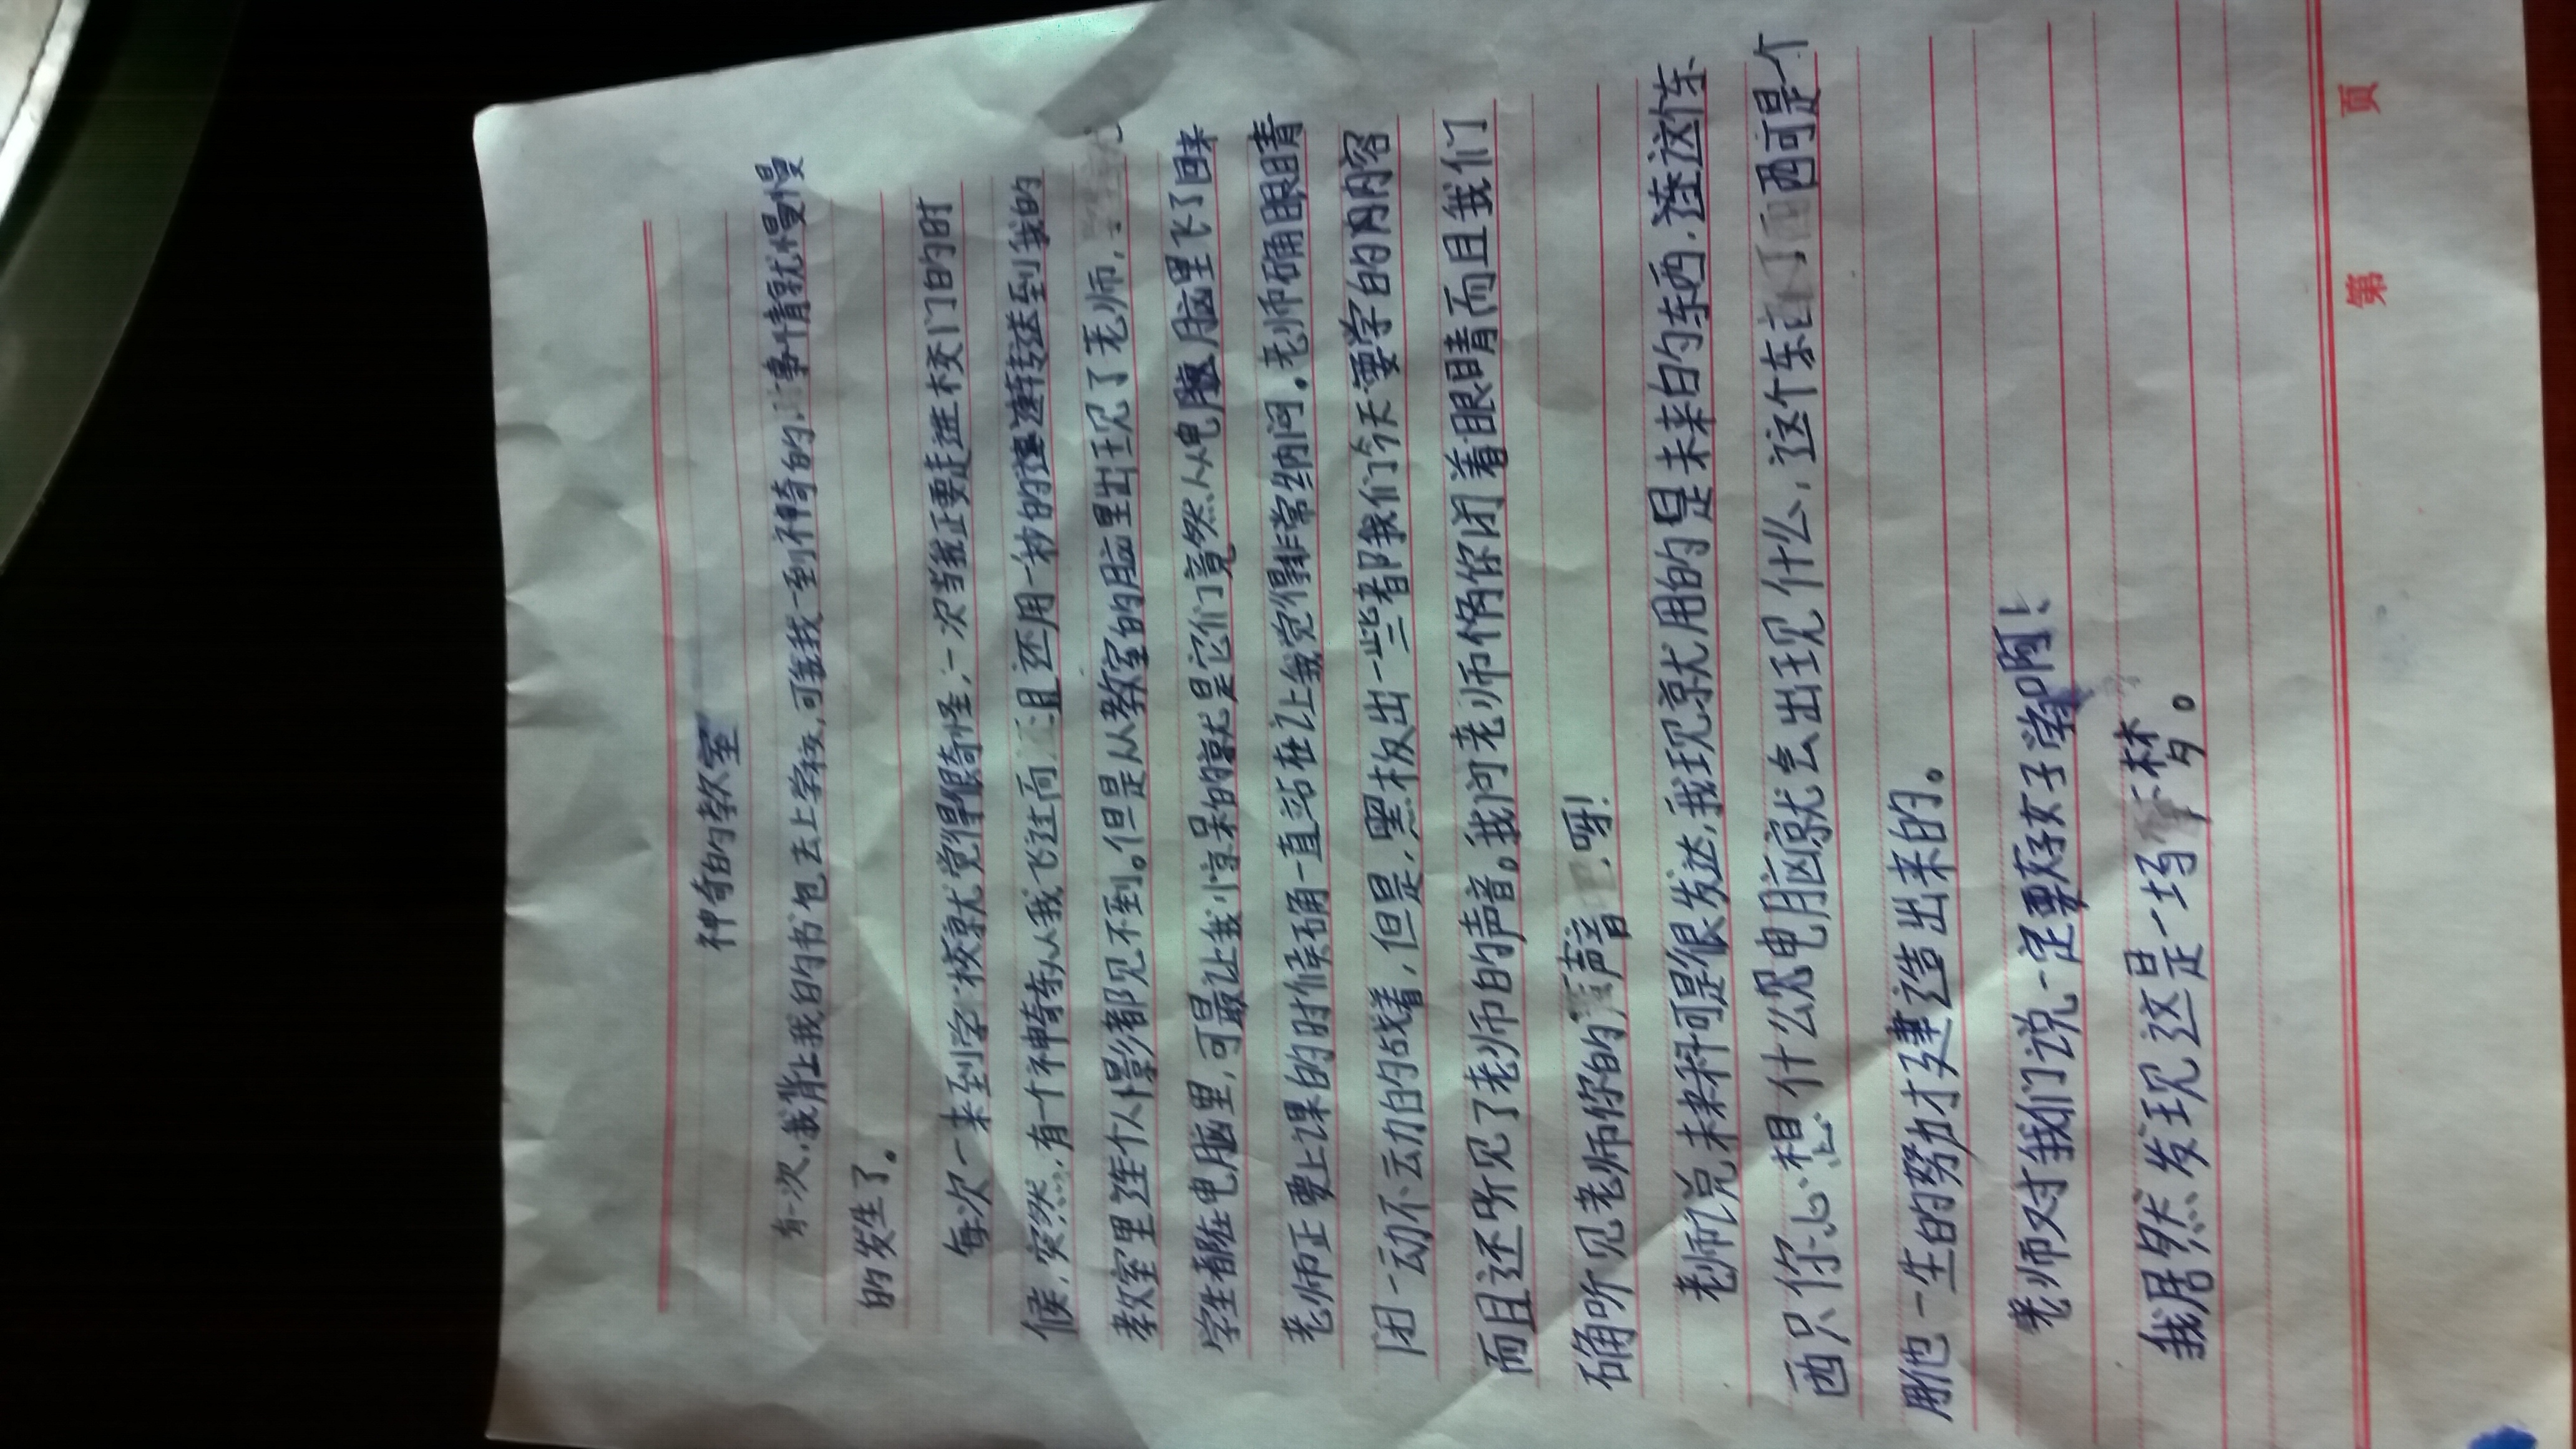 神奇的教室
有一次,我背上我的书包去上学校,可当我一到神奇的事情就慢慢
的发生了。
每次一来到学校就觉得很奇怪,一次当我正要走进校门的时
候,突然,有一个神奇东从我飞过而且还用一秒的速转送到我的
教室里连个人影都见不到。但是从教室的脑里出现了老师,
学生都在电脑里,可最让我惊呆的就是它们竟然从电脑里飞了回来
老师正要上课的时候确一直站在让我觉得非常纳闷。老师确眼睛
闭一动不动的战着,但是,黑板出一些都我们今天要学的内容
而且还听见了老师的声音。我问老师俩你闭着眼睛而且我们
确听见老师你的声音呀!
老师说未来科可是很发达,我现就用的是未来的东西,连这个东
西只你心想什么电脑就会出现什么,这个东西可是一个
用他一生的努力才建造出来的。
老师对我们说一定要好好学啊!
我居然发现这是一场梦。
第 頁